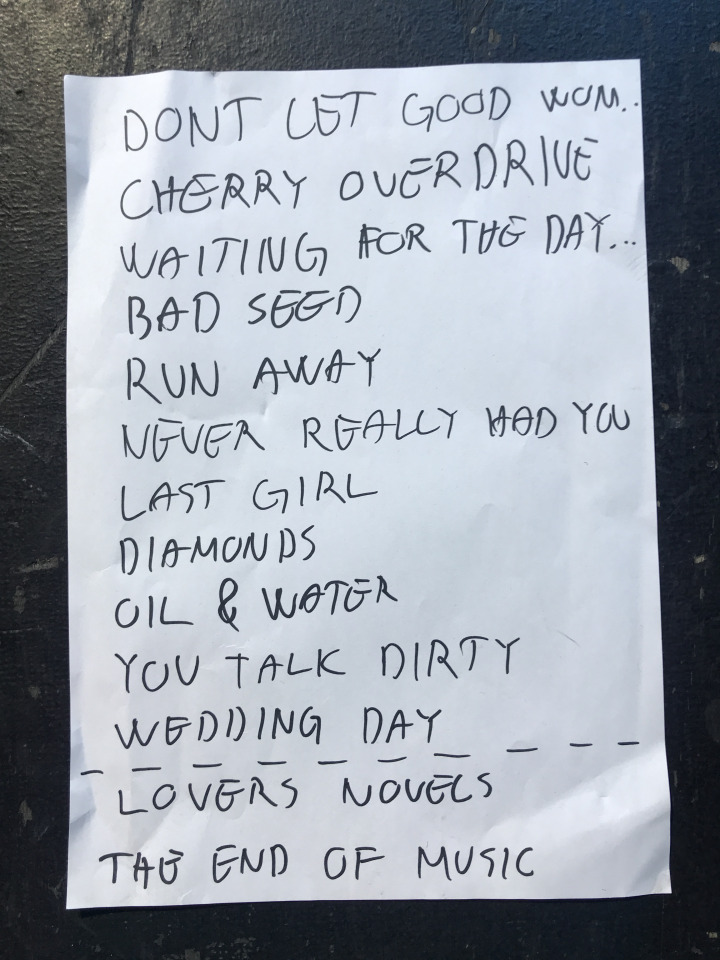 DONT LET GOOD WOM..
CHERRY OVERDRIVE
WAITING FOR THE DAY...
BAD SEED
RUN AWAY
NEVER REALLY HAD YOU
LAST GIRL
DIAMONDS
OIL & WATER
YOU TALK DIRTY
WEDDING DAY
LOVERS NOVELS
THE END OF MUSIC